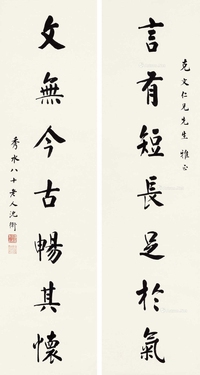 克文仁兄先生雅正
言有短長足於氣
文無今古暢其懷
秀水八十老人沈衛